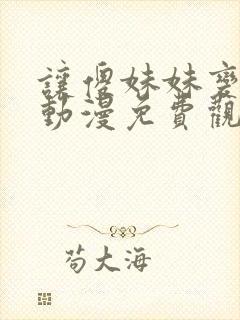 讓傻妹妹變
動漫免費觀
苟大海